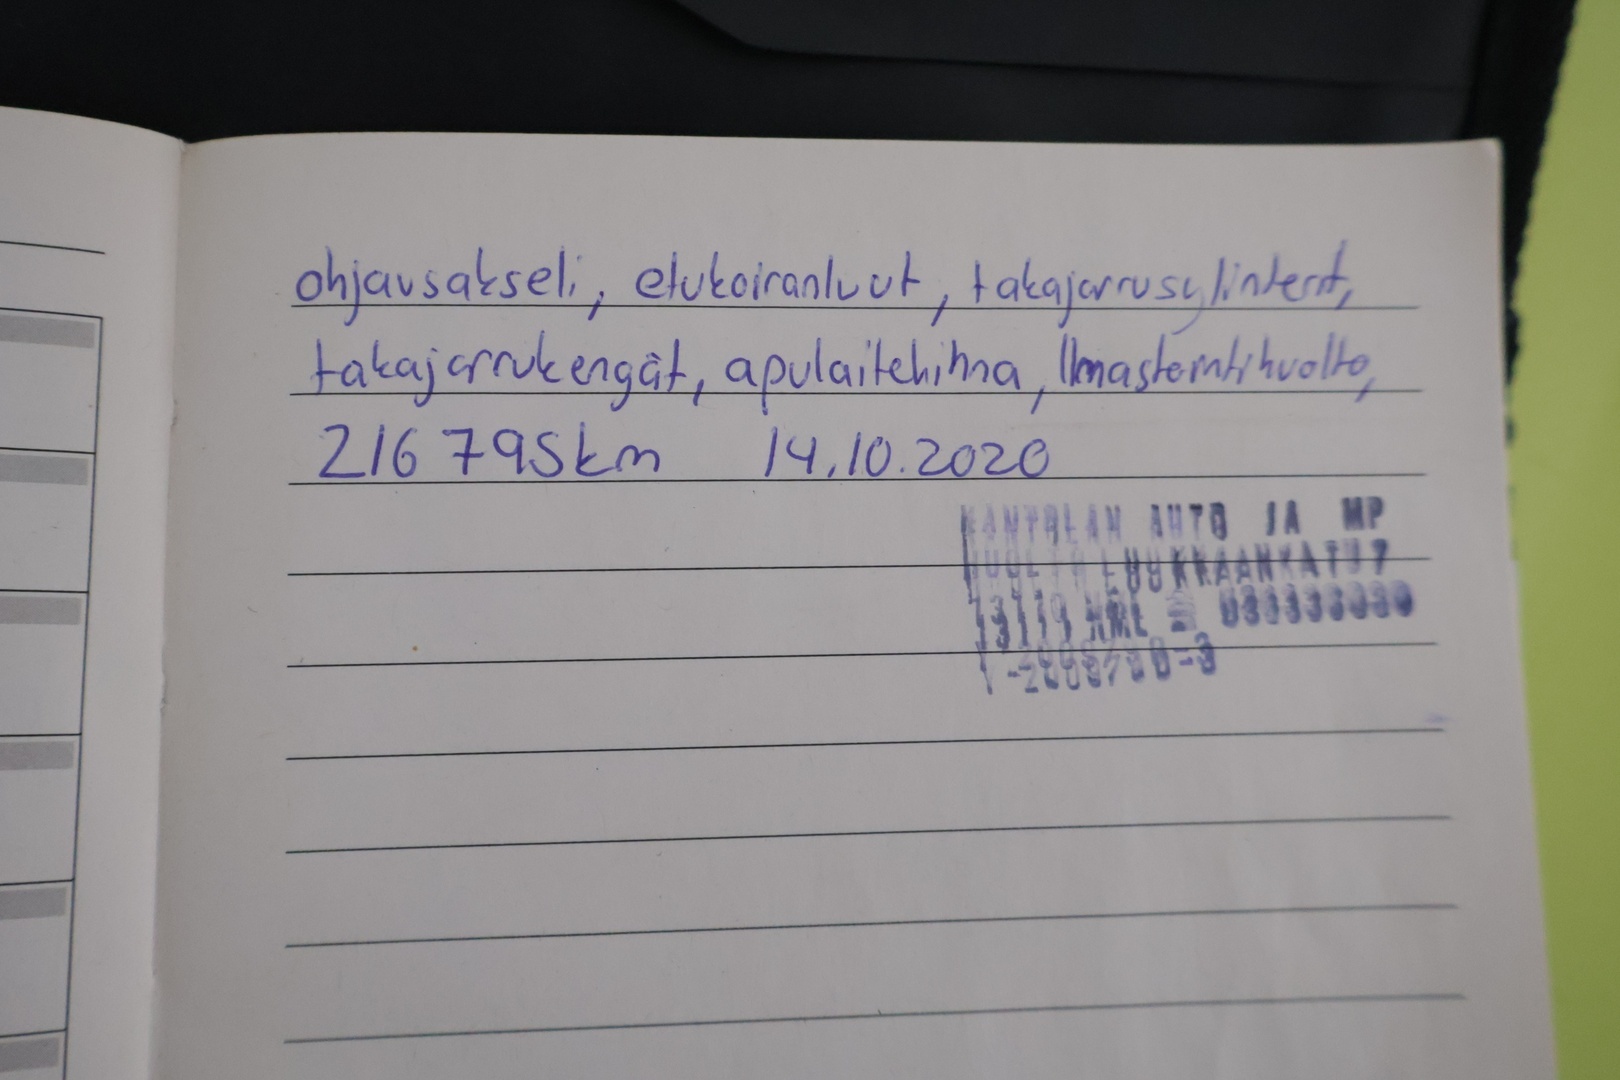 ohjausakseli, etukoiranluut, takajarrusylinterit,
takajarrukengät, apulaitehihna, Ilmastointihuolto,
216 795km 14.10.2020
KANTOLAN AUTO JA MP
HUOLTO LUUKKAANKATU 7
13110 HML